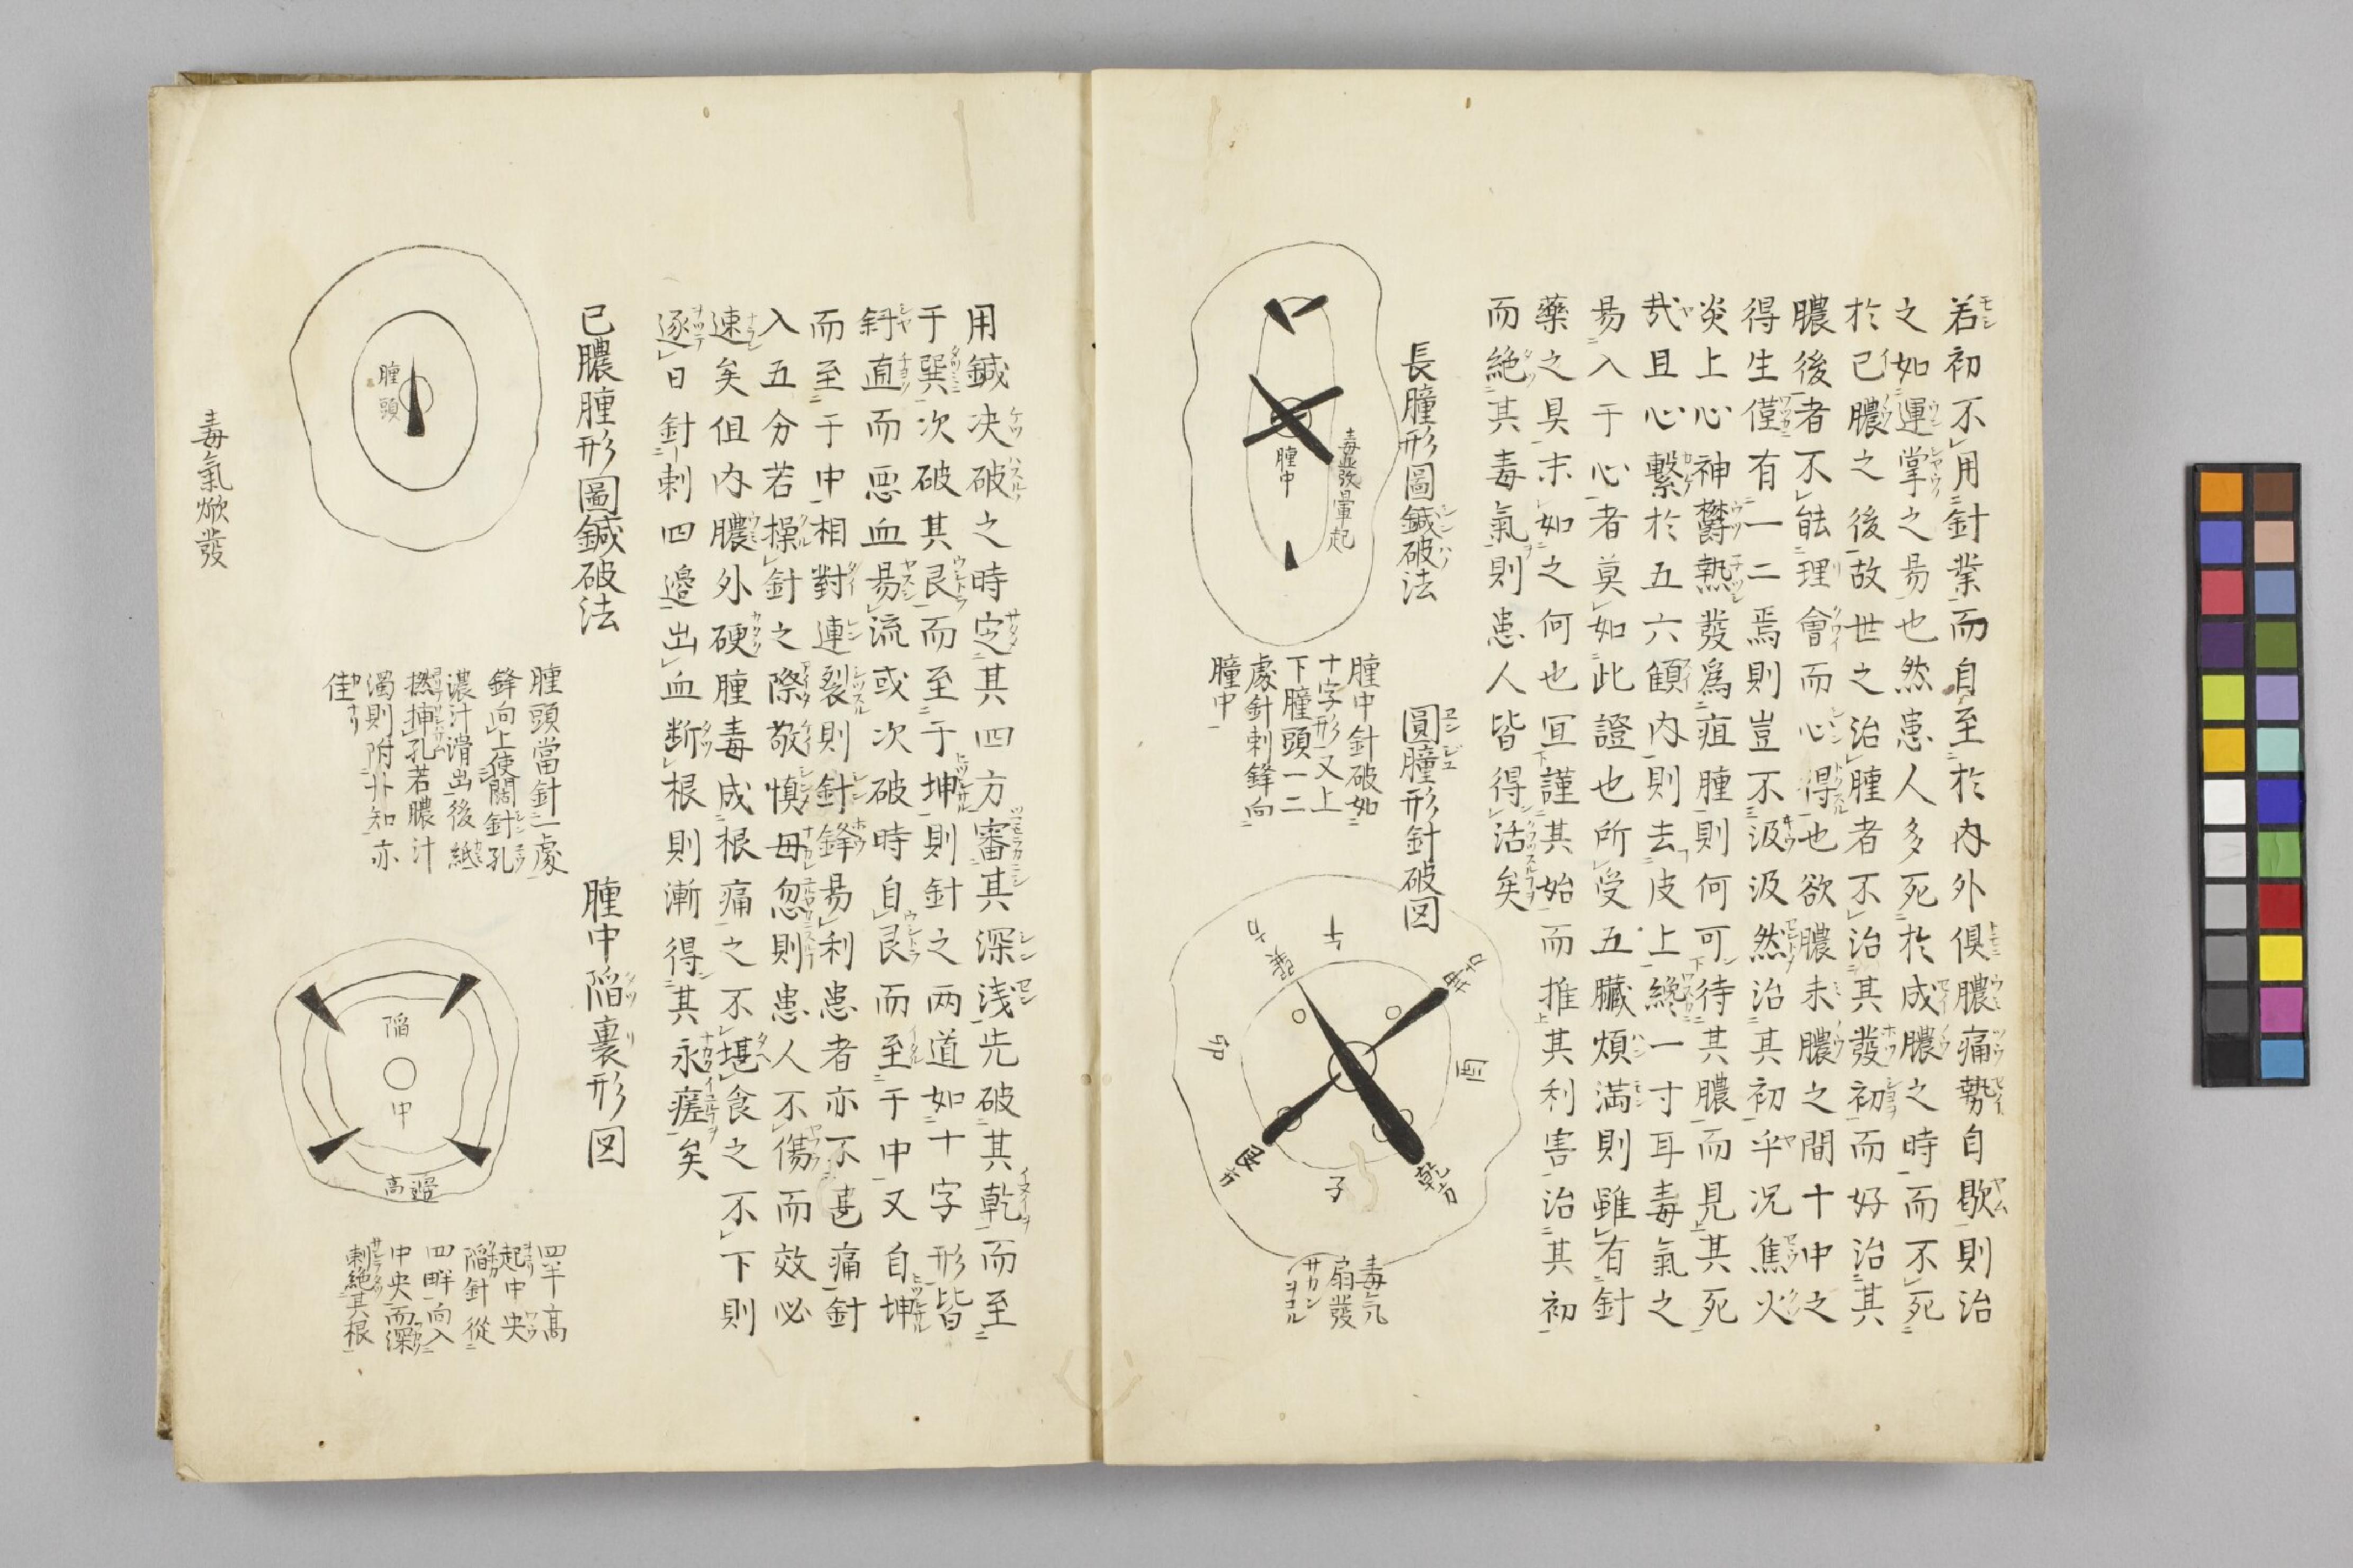 若初不用針業而自至於内外俱膿痛勢自歇則治
之如運掌之易也然患人多死於成膿之時而不死
於已膿之後故世之治腫者不治其發初而好治其
膿後者不能理會而心得也欲膿未膿之間十中之
得生僅有一二焉則豈不汲汲然治其初乎況焦火
炎上心神欝熱發爲疽腫則何可待其膿而見其死
哉且心繫於五六顀内則去皮上纔一寸耳毒氣之
易入于心者莫如此證也所受五臟煩満則雖有針
藥之具末如之何也宜謹其始而推其利害治其初
而絶其毒氣則患人皆得活矣
長腫形圖鍼破法
毒气散暈起
腫中
腫中針破如
十字形又上
下腫頭一二
處針刺鋒向
腫中
圓腫形針破図
午
巽方
坤方
卯
酉
艮方
子
乾方
毒氕
扇發
サカン
ヲコル
用鍼决破之時定其四方審其深浅先破其乾而至
于巽次破其艮而至于坤則針之两道如十字形皆
斜直而惡血易流或次破時自艮而至于中又自坤
而至于中相對連裂則針鋒易利患者亦不甚痛針
入五分若操針之際敬慎毋忽則患人不傷而效必
速矣但内膿外硬腫毒成根痛之不堪食之不下則
逐日針刺四邉出血断根則漸得其永瘥矣
已膿腫形圖鍼破法
腫頭
毒氣焮發
腫頭當針一處
鋒向上使闊針孔
濃汁滑出後紙
撚挿孔若膿汁
濁則附𠦄知亦
佳
腫中陷裏形図
陷
中
高邉
四羊高
起中央
陷針從
四畔向入
中央而深
刺絶其根